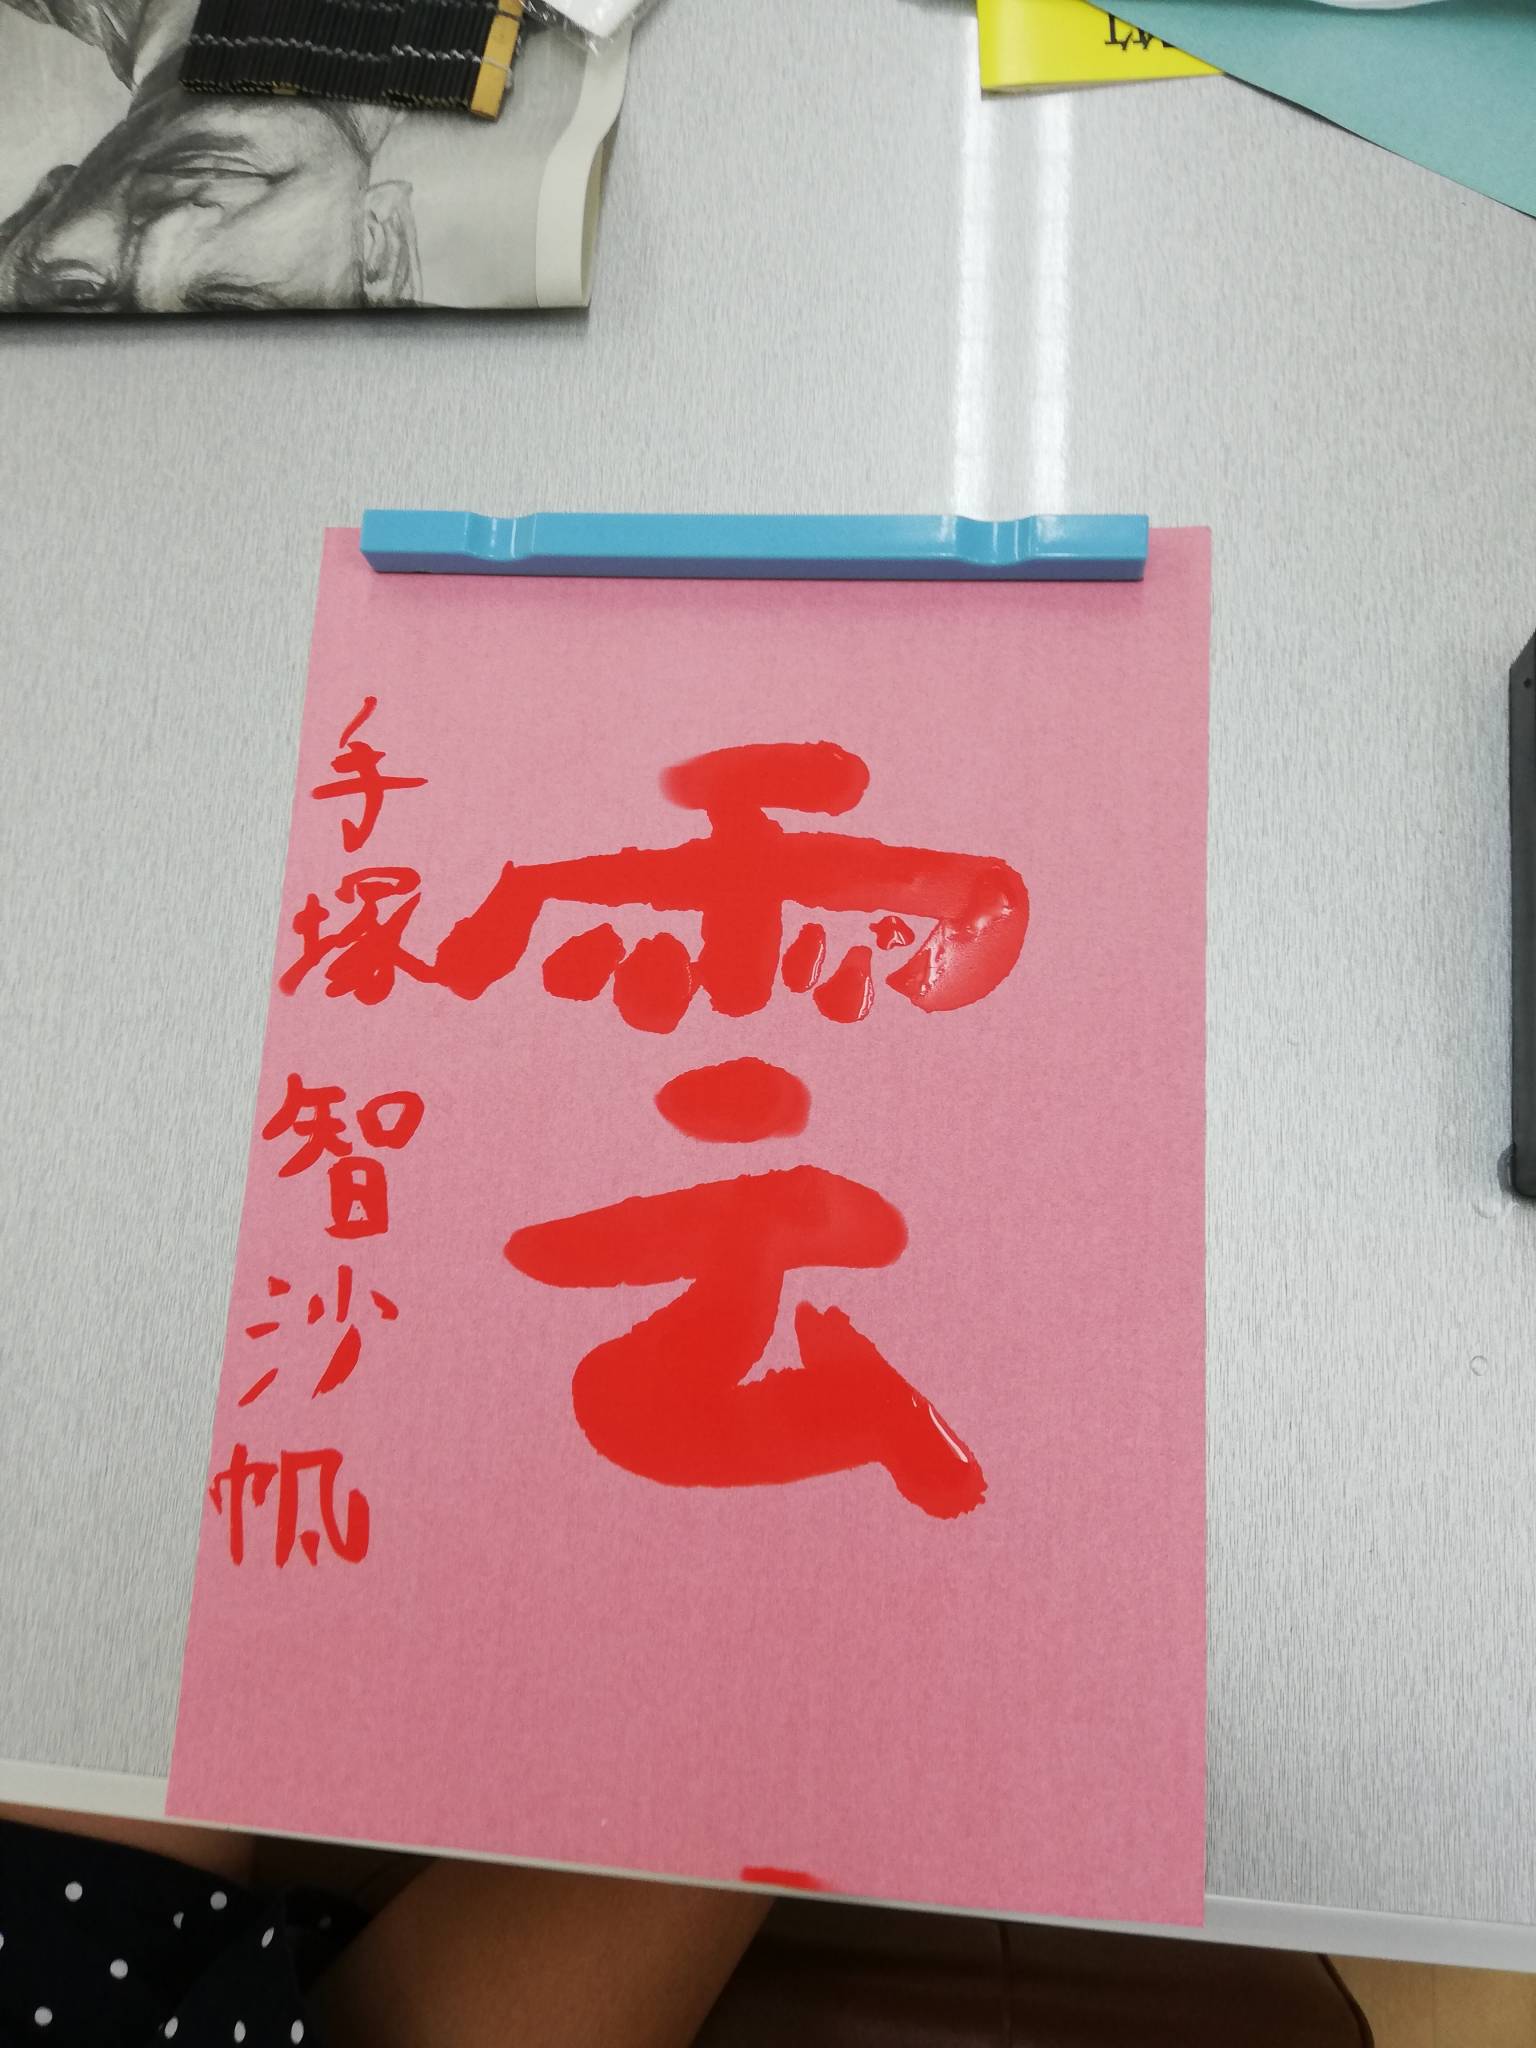 雲
手塚 智沙帆